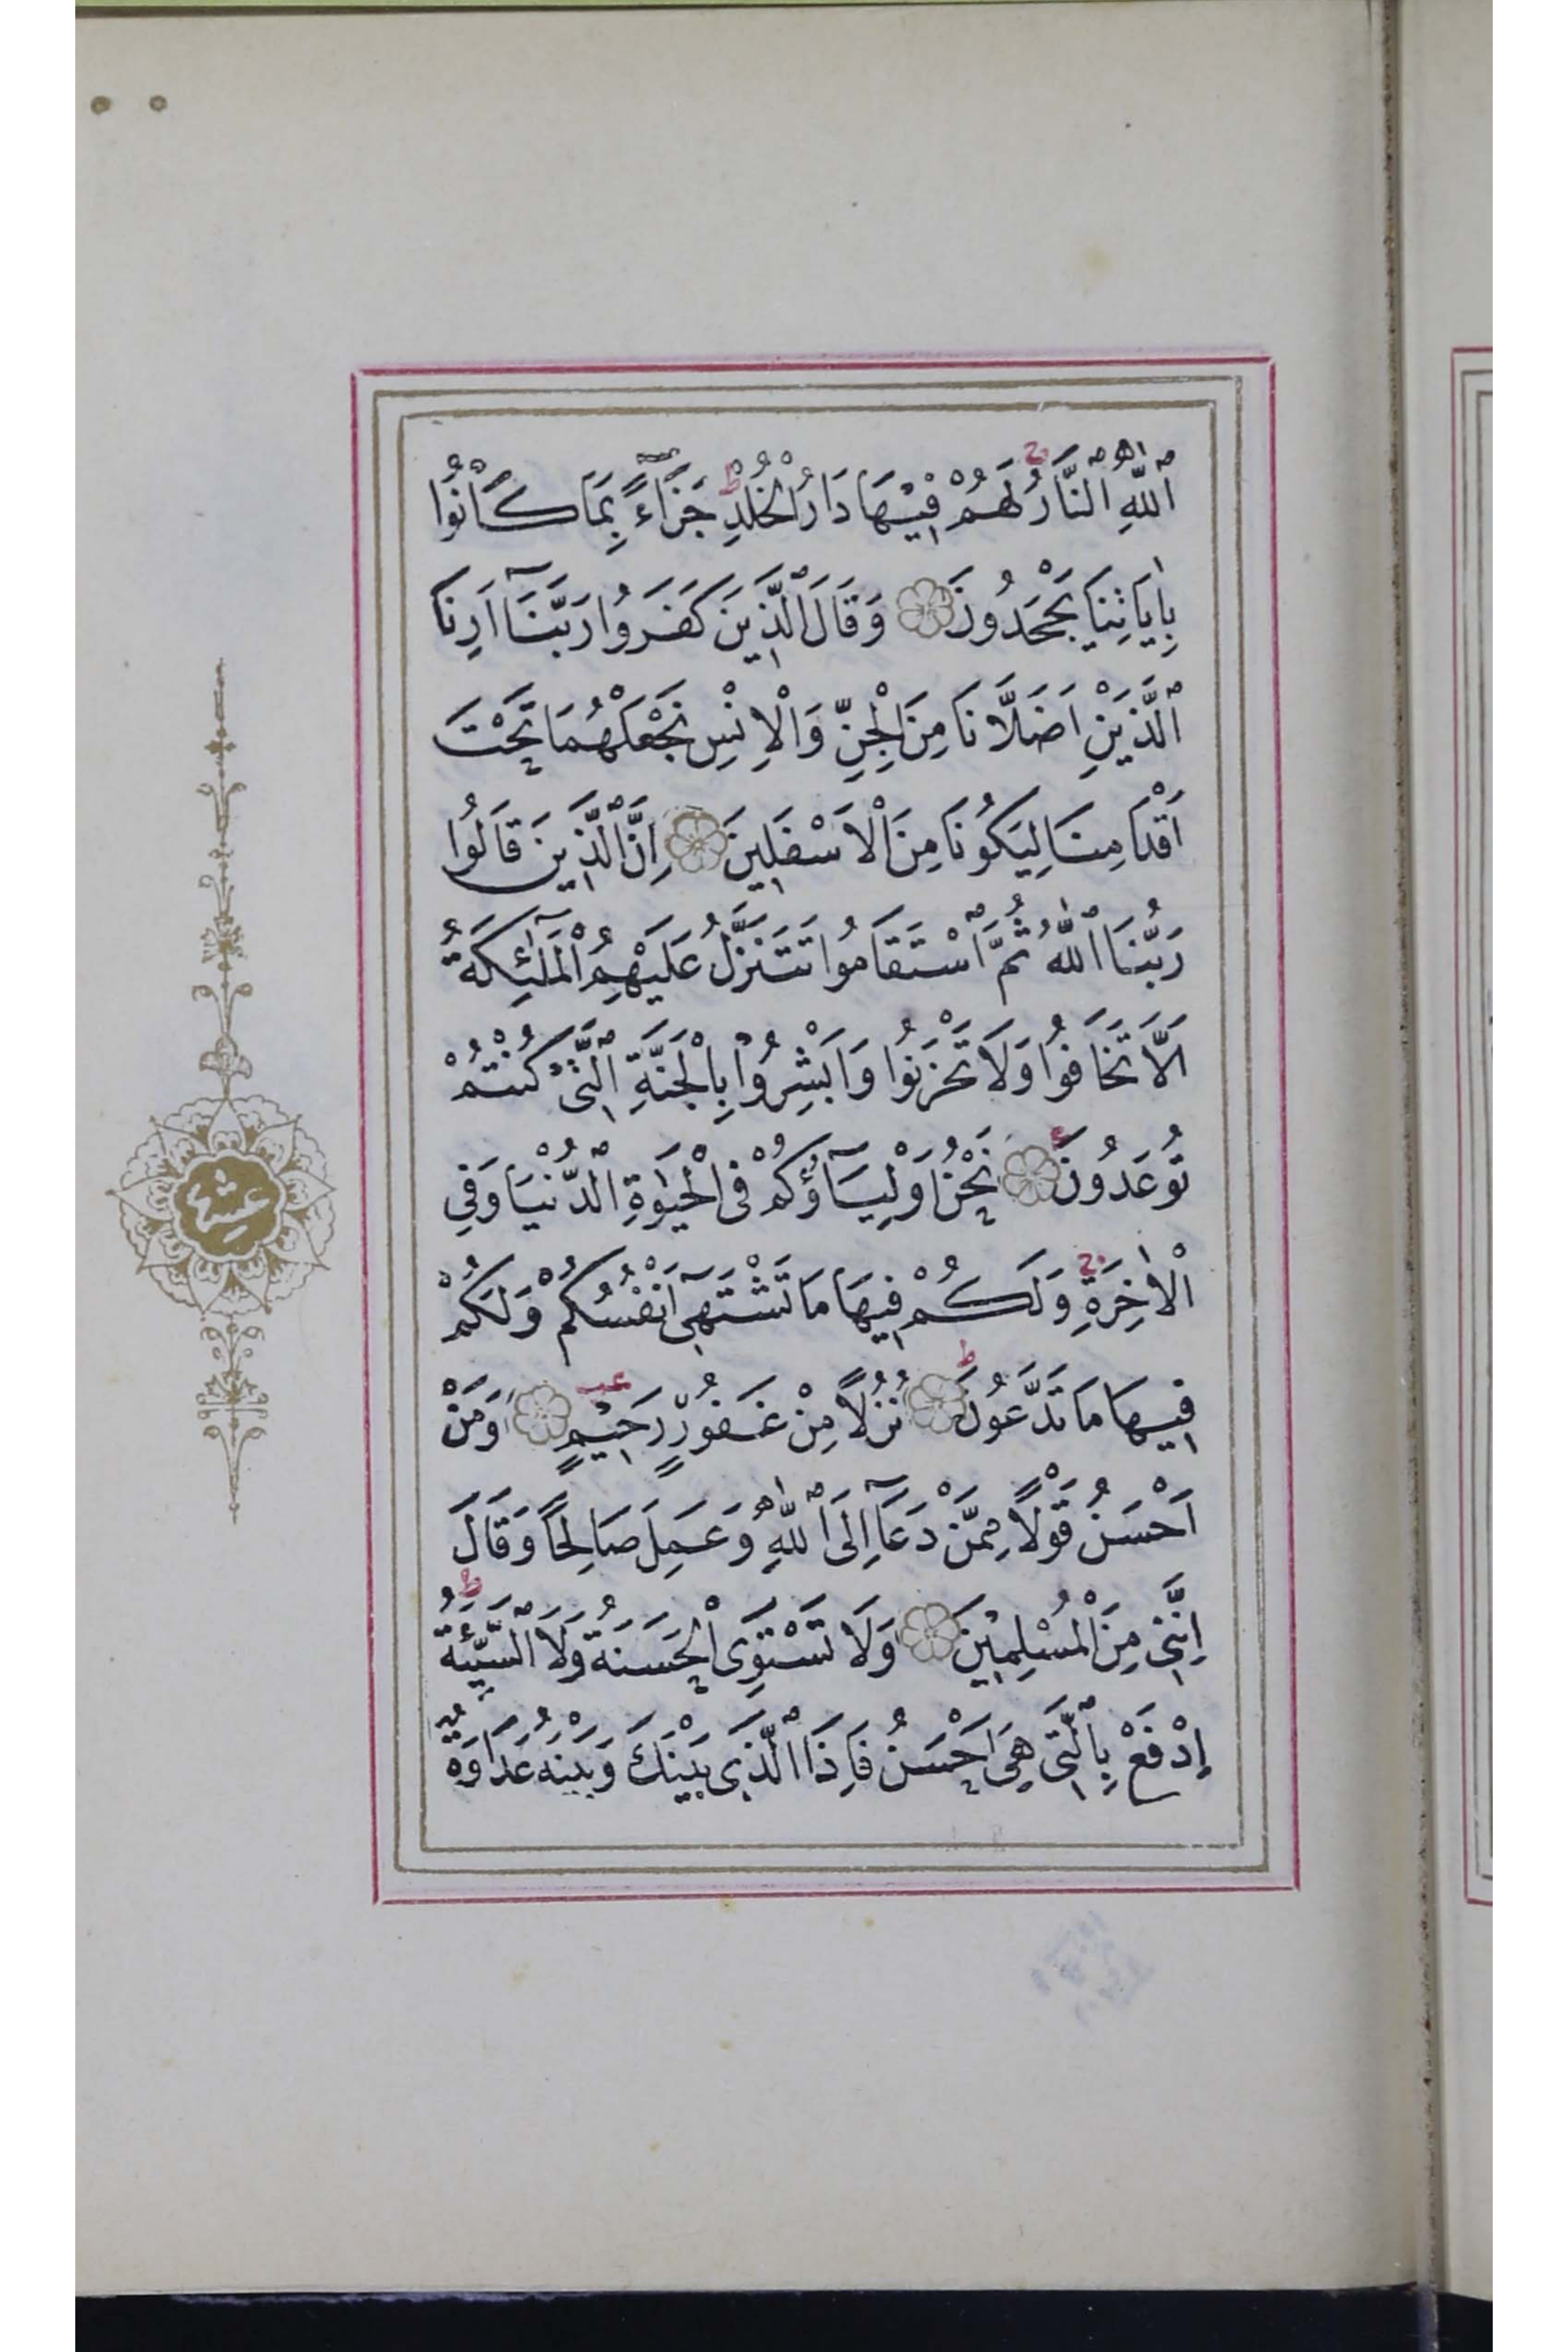 اللّٰهِ النَّارُ لَهُمْ فِيْهَا دَارُ الْخُلْدِ جَزَٓاءً بِمَا كَانُوا
بِاٰيَاتِنَا يَجْحَدُونَ وَقَالَ الَّذِينَ كَفَرُوا رَبَّنَٓا اَرِنَا
الَّذَيْنِ اَضَلَّانَا مِنَ الْجِنِّ وَالْاِنْسِ نَجْعَلْهُمَا تَحْتَ
اَقْدَامِنَا لِيَكُونَا مِنَ الْاَسْفَلِينَ اِنَّ الَّذِينَ قَالُوا
رَبُّنَا اللّٰهُ ثُمَّ اسْتَقَامُوا تَتَنَزَّلُ عَلَيْهِمُ الْمَلٰٓئِكَةُ
اَلَّا تَخَافُوا وَلَا تَحْزَنُوا وَاَبْشِرُوْا بِالْجَنَّةِ الَّتِى كُنْتُمْ
تُوعَدُونَ نَحْنُ اَوْلِيَٓاؤُكُمْ فِى الْحَيٰوةِ الدُّنْيَا وَفِي
الْاٰخِرَةِ وَلَكُمْ فِيهَا مَا تَشْتَهِىٓ اَنْفُسُكُمْ وَلَكُمْ
فِيهَا مَا تَدَّعُونَ نُزُلًا مِنْ غَفُورٍ رَحِيْمٍ وَمَنْ
اَحْسَنُ قَوْلًا مِمَّنْ دَعَٓا اِلَى اللّٰهِ وَعَمِلَ صَالِحًا وَقَالَ
اِنَّنِى مِنَ الْمُسْلِمِيْنَ وَلَا تَسْتَوِى الْحَسَنَةُ وَلَا السَّيِّئَةُ
اِدْفَعْ بِالَّتِى هِىَ اَحْسَنُ فَاِذَا الَّذِى بَيْنَكَ وَبَيْنَهُ عَدَاوَةٌ
عشر